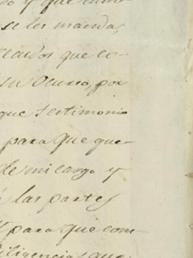 y que
se les manda,
que co-
su oturio, por
que testimonio
para que que-
de mi cargo y
las partes
para que con-
diligencias que